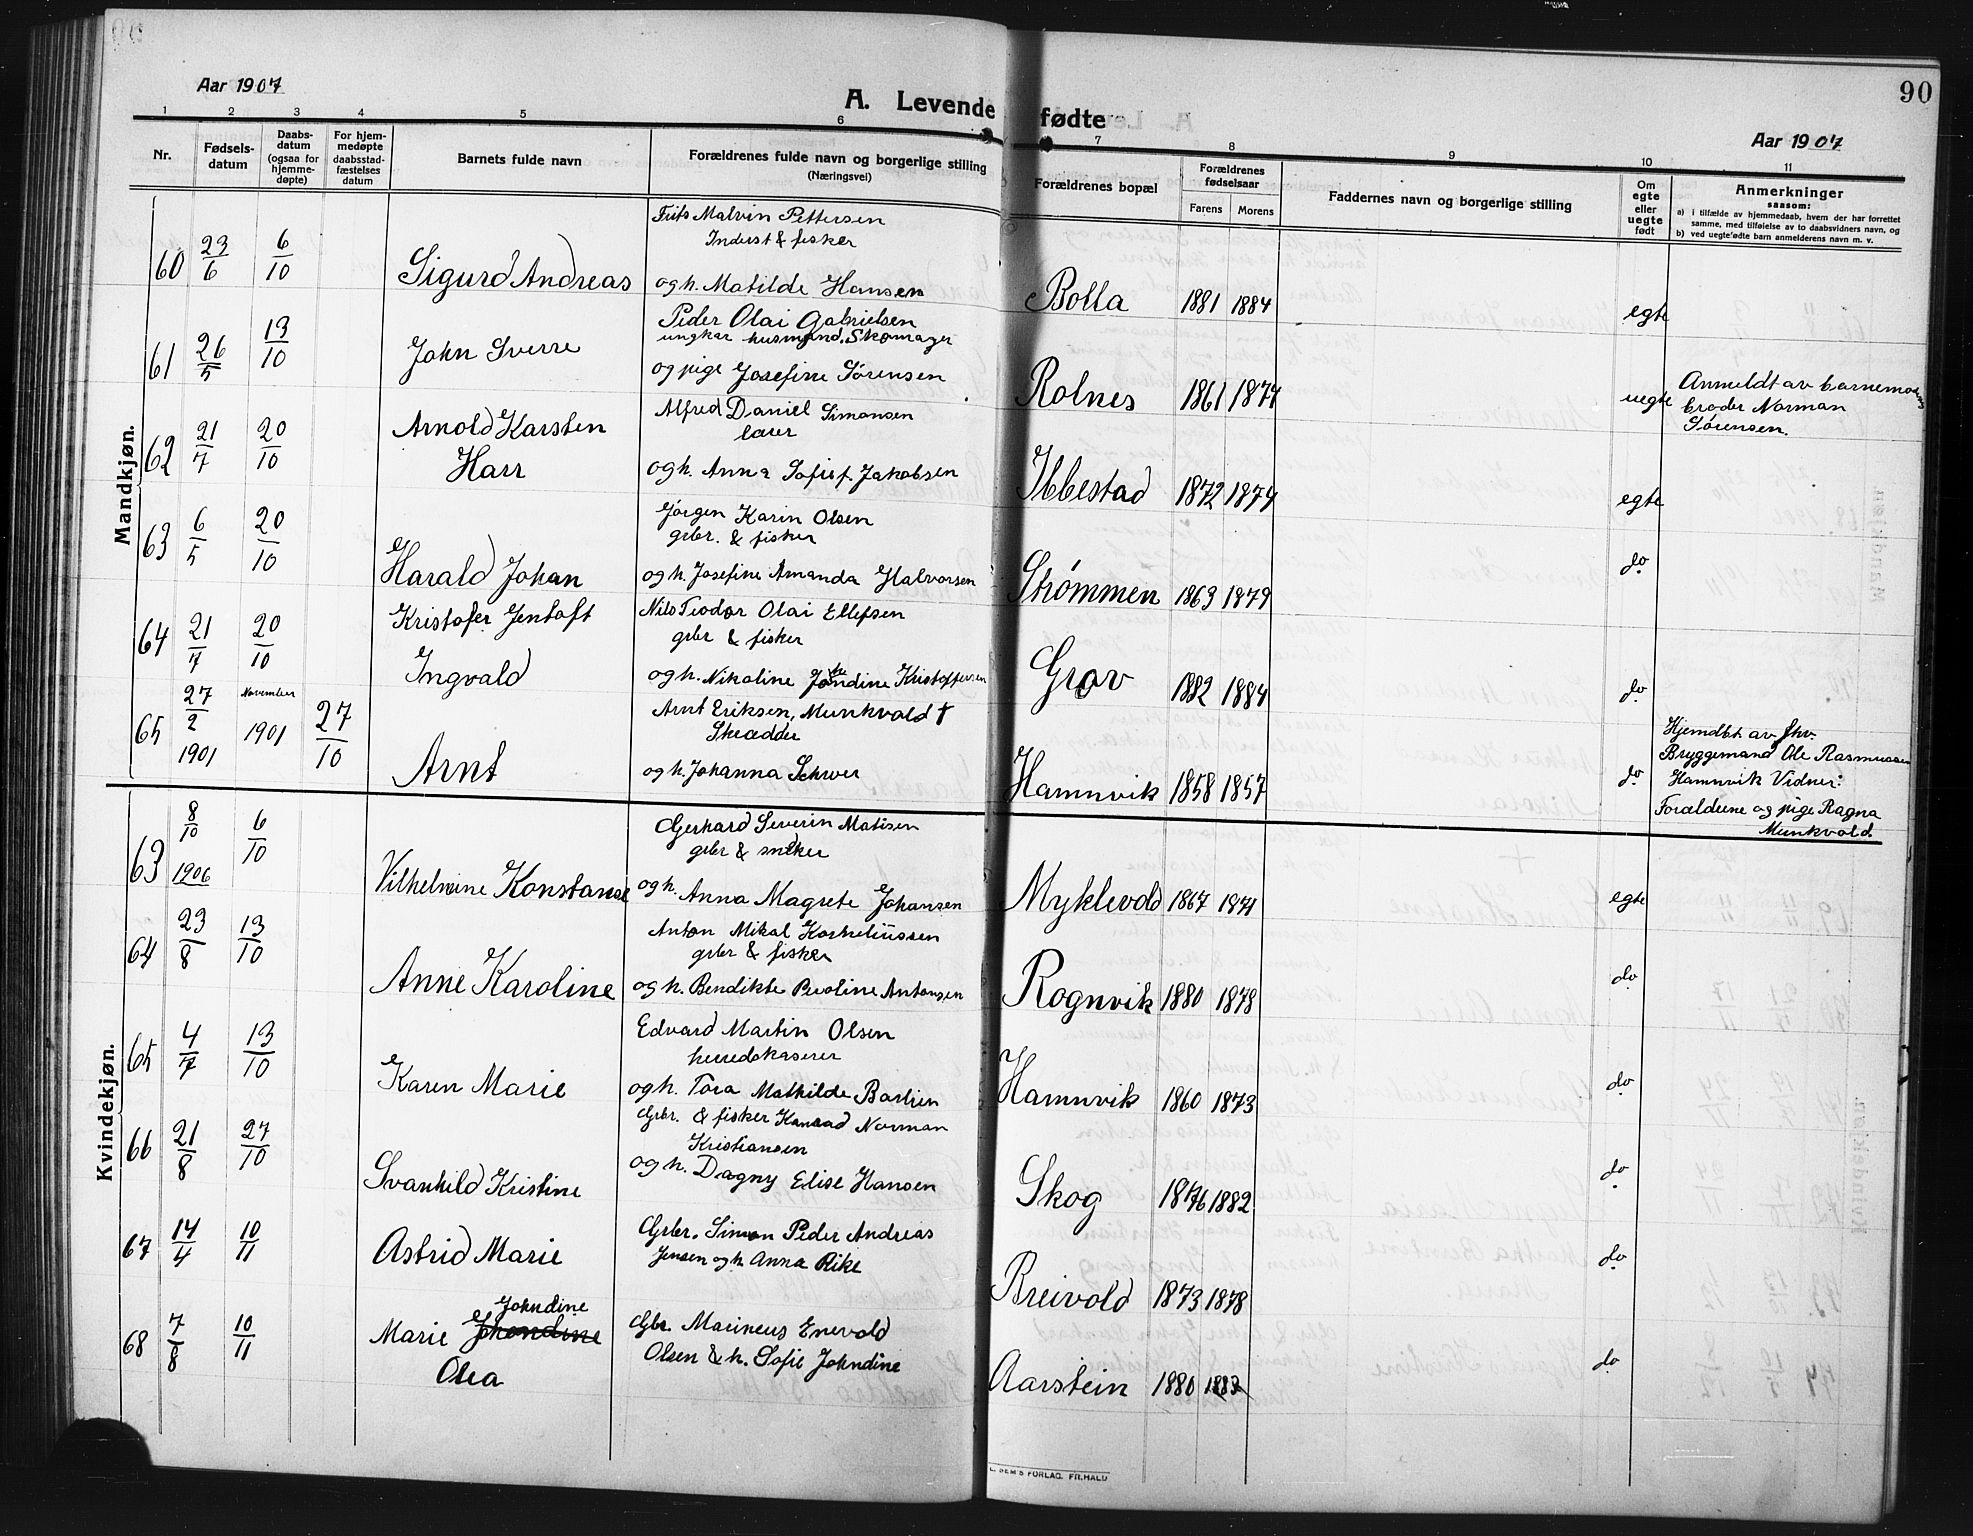 Aar 1907
A. Levende fødte
Aar 1907
90
1 2 3 4 5 6 7 8 9 10 11
Nr.
Fødsels-
datum
Daabs-
datum
(ogsaa for
hjemme-
døpte)
For hjem-
medøpte
daabsstad-
fæstelses
datum
Barnets fulde navn
Forældrenes fulde navn og borgerlige stilling
(Næringsvei)
Forældrenes bopæl
Forældrenes
fødselsaar
Farens Morens
Faddernes navn og borgerlige stilling
Om
egte
eller
uegte
født
Anmerkninger
saasom:
a) i tilfælde av hjemmedaab, hvem der har forrettet
samme, med tilføielse av to daabsvidners navn, og
b) ved uegtefødte barn anmelderens navn m. v.
Mandkjøn.
60 23/6 6/10 Sigurd Andreas
Frits Malvin Pettersen
Inderst & fisker
og h. Matilde Hansen
Bolla 1881 1884 egte
61 26/5 13/10 John Sverre
Peder Olai Gabrielsen
ungkar husmand. Skomager
og pige Josefine Sørensen
Rolnes 1861 1874 uegte
Anmeldt av barnemoders
broder Norman
Sørensen.
62 21/7 20/10 Arnold Karsten
Harr
Alfred Daniel Simonsen
lærer
og h. Anna Sofie f. Jakobsen
Ibbestad 1872 1874 egte
63 6/5 20/10 Harald Johan
Jørgen Karin Olsen
grbr. & fisker
og h. Josefine Amanda Halvorsen
Strømmen 1863 1879 do.
64 21/7 20/10 Kristofer Jentoft
Ingvald
Nils Teodor Olai Ellefsen
grbr & fisker
og h. Nikoline Kristoffersen
Grov 1882 1884 do.
65 27/2 1901 November 1901 27/10 Arnt
Arnt Eriksen, Munkvold †
Skrædder
og h. Johanna Schrøer
Hamnvik 1858 1857 do.
Hjemdbt av fhv.
Bryggemand Ole Rasmussen
Hamnvik Vidner:
Forældrene og pige Ragna
Munkvold.
Kvindekjøn.
63 8/10 1906 6/10 Vilhelmine Konstanse
Gerhard Severin Matisen
grbr & snekker
og h. Anna Magrete Johansen
Myklevold 1867 1871 egte
64 23/8 13/10 Anne Karoline
Anton Mikal Korneliussen
grbr & fisker
og h. Bendikte Pevoline Antonsen
Rognvik 1880 1878 do.
65 4/7 13/10 Karen Marie
Edvard Martin Olsen
herredskaserer
og h. Tora Mathilde Barlien
Hamnvik 1860 1873 do.
66 21/8 27/10 Svanhild Kristine
Grbr. & fisker Konrad Norman
Kristiansen
og h. Dagny Elise Hansen
Skog 1876 1882 do.
67 14/4 10/11 Astrid Marie
Grbr. Simon Peder Andreas
Jensen og h. Anna Rike
Breivold 1873 1878 do.
68 7/8 10/11 Marie Johndine
Olea
Gbr. Marineus Enevold
Olsen & h. Sofie Johndine
Aarstein 1880 1883 do.
SEM'S FORLAG. FR.HALD